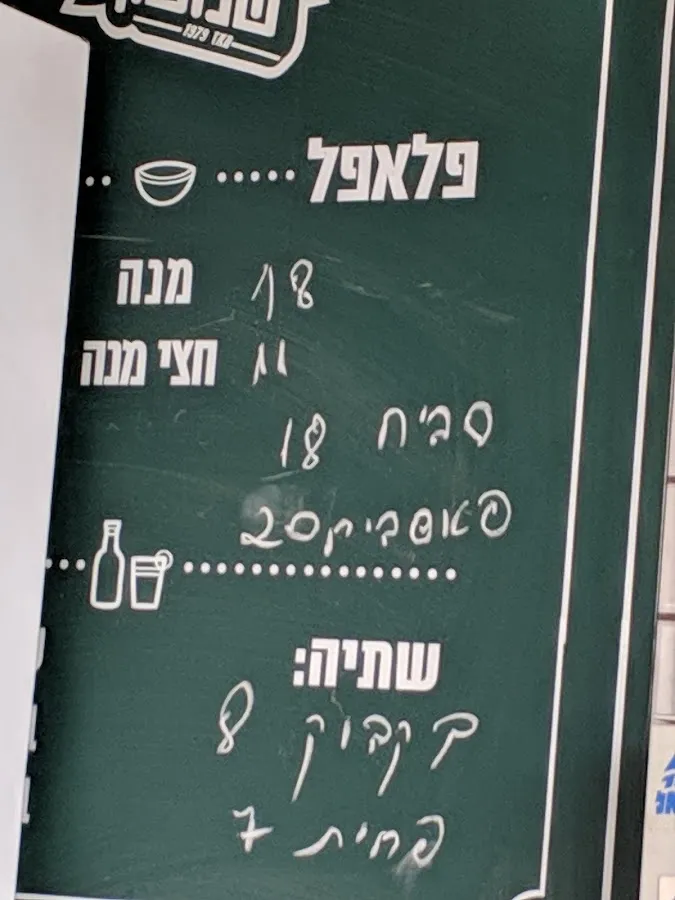 מאז 1979
פלאפל
מנה 18
חצי מנה 11
סביח 18
פאפביק 20
שתיה:
בקבוק 8
פחית 7